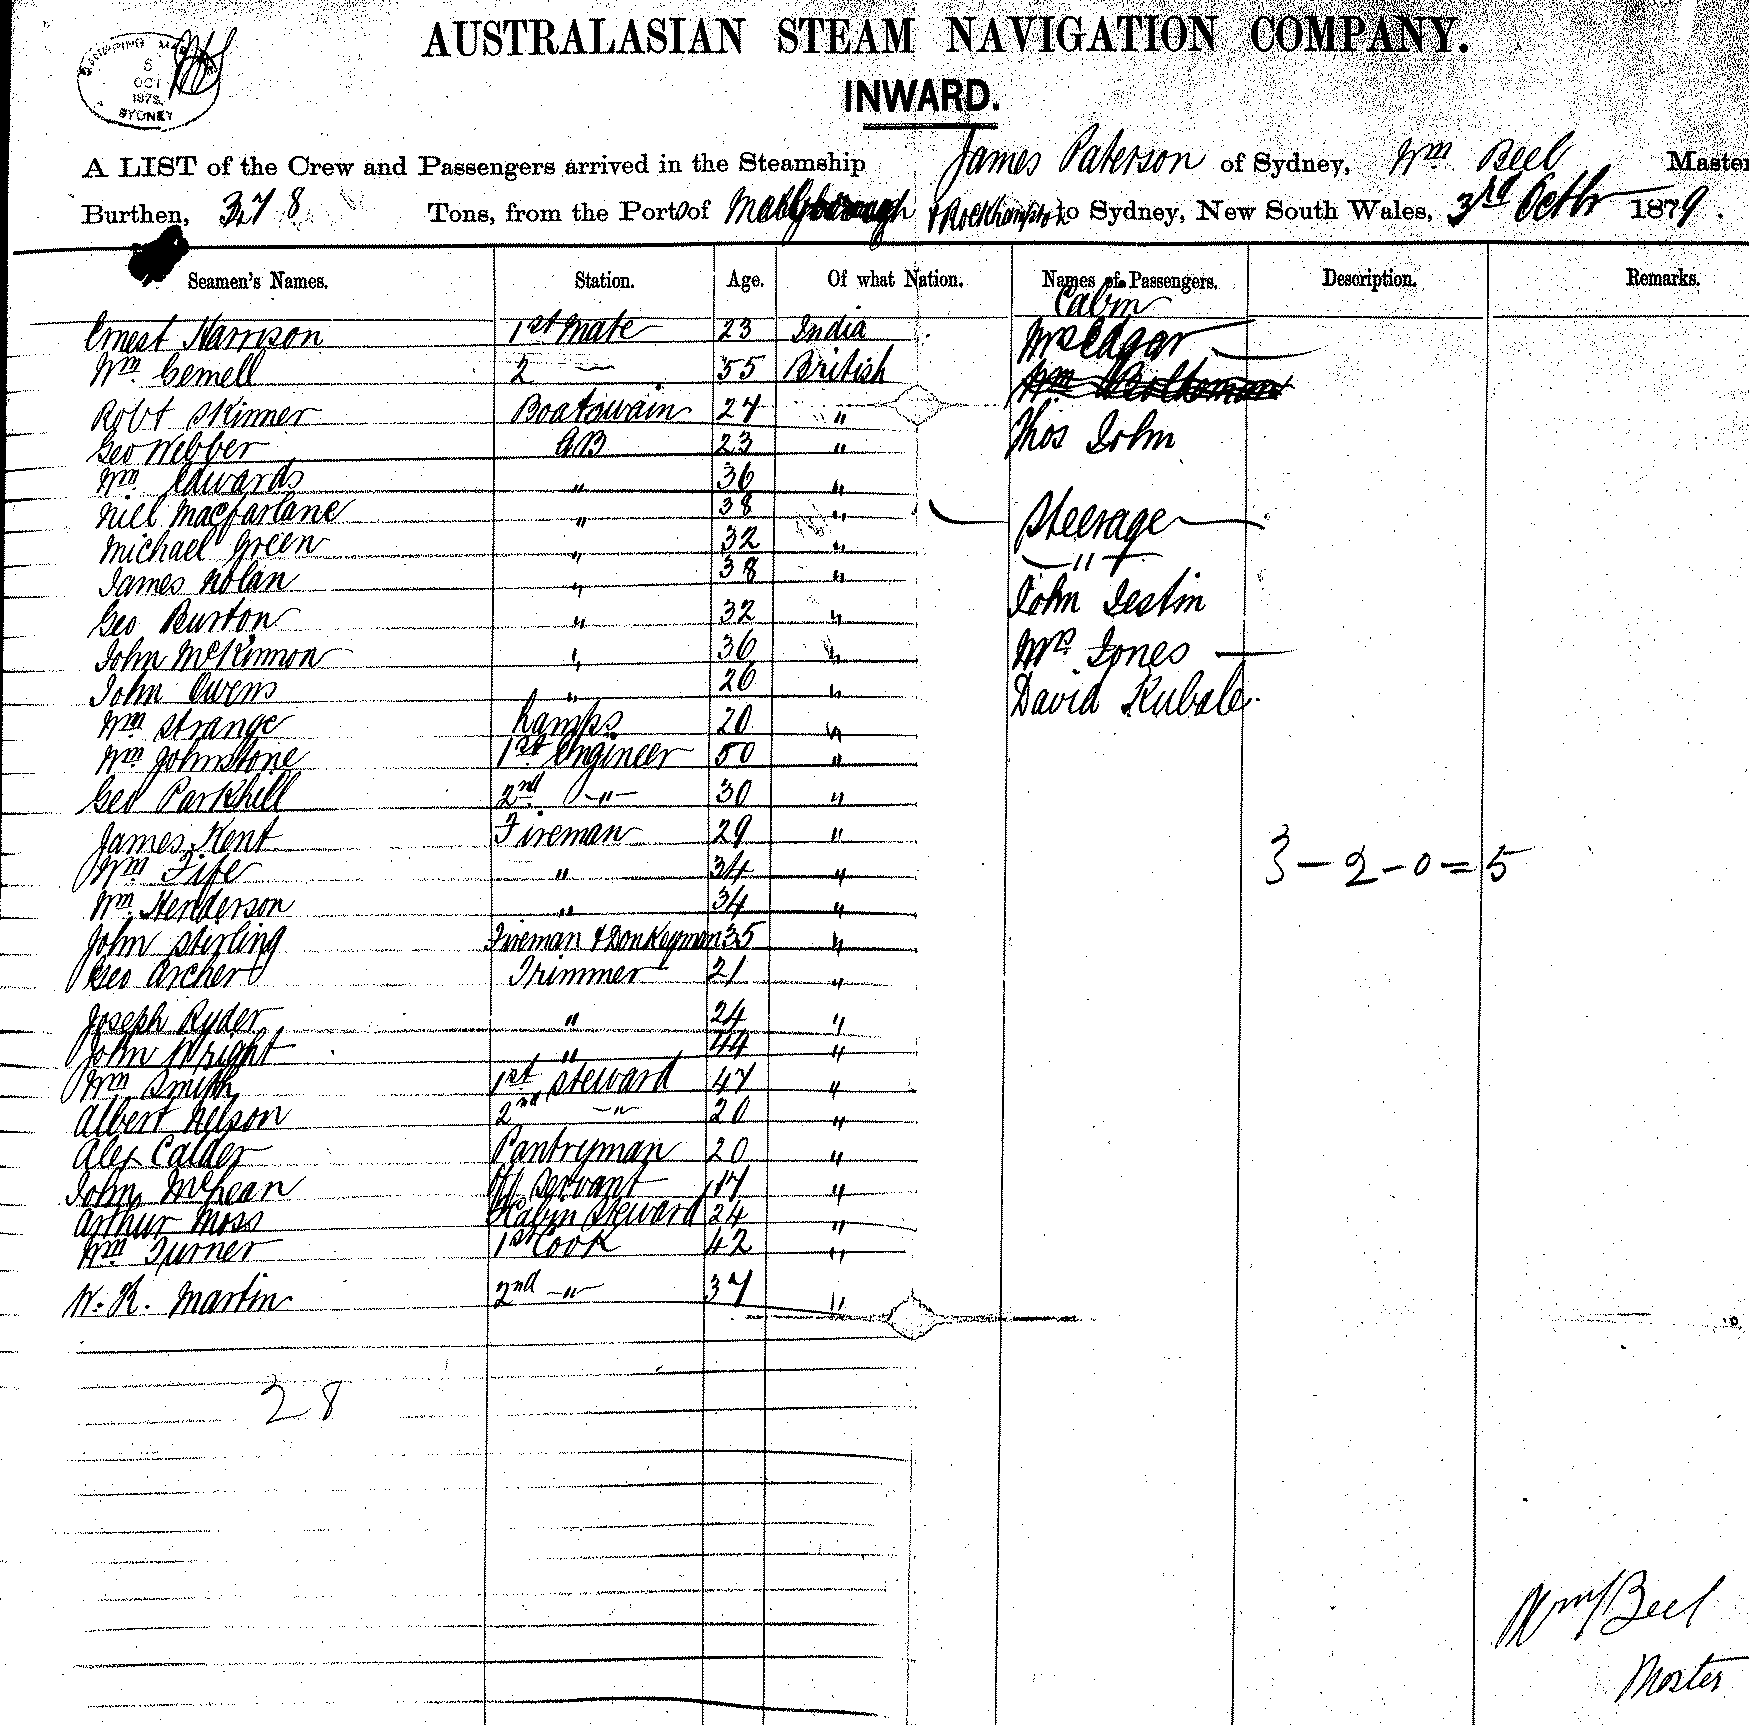 SHIPPING MA
6
OCT
1879
SYDNEY
AUSTRALASIAN STEAM NAVIGATION COMPANY.
INWARD.
A LIST of the Crew and Passengers arrived in the Steamship James Paterson of Sydney, Wm Beel Master
Burthen, 378 Tons, from the Ports of Maryborough & Rockhampton to Sydney, New South Wales, 3rd Octbr 1879.
Seamen's Names. Station. Age. Of what Nation. Names of Passengers. Description. Remarks.
Cabin
Ernest Harrison 1st Mate 23 India Mrs Edgar
Wm Gemell 2 — 55 British Wm
Robt Skinner Boatswain 27 " Thos John
Geo Webber AB 23 "
Wm Edwards " 36 "
Niel Macfarlane " 38 " Steerage
Michael Green " 32 " — " —
James Nolan " 38 " John Jestin
Geo Burton " 32 "
John McKinnon " 36 " Mrs Jones
John Owens " 26 " David Kubale
Wm Strange Lamps 20 "
Wm Johnstone 1st Engineer 50 "
Geo Parkhill 2nd — " — 30 "
James Kent Fireman 29 "
Wm Fife " 34 " 3 - 2 - 0 = 5
Wm Henderson " 34 "
John Stirling Fireman & Donkeyman 35 "
Geo Archer Trimmer 21 "
Joseph Ryder " 24 "
John Wright " 44 "
Wm Smith 1st Steward 47 "
Albert Nelson 2nd — " 20 "
Alex Calder Pantryman 20 "
John McLean Servant 17 "
Arthur Moss Cabin Steward 24 "
Wm Turner 1st Cook 42 "
W. R. Martin 2nd — " — 37 "
28
Wm Beel
Master